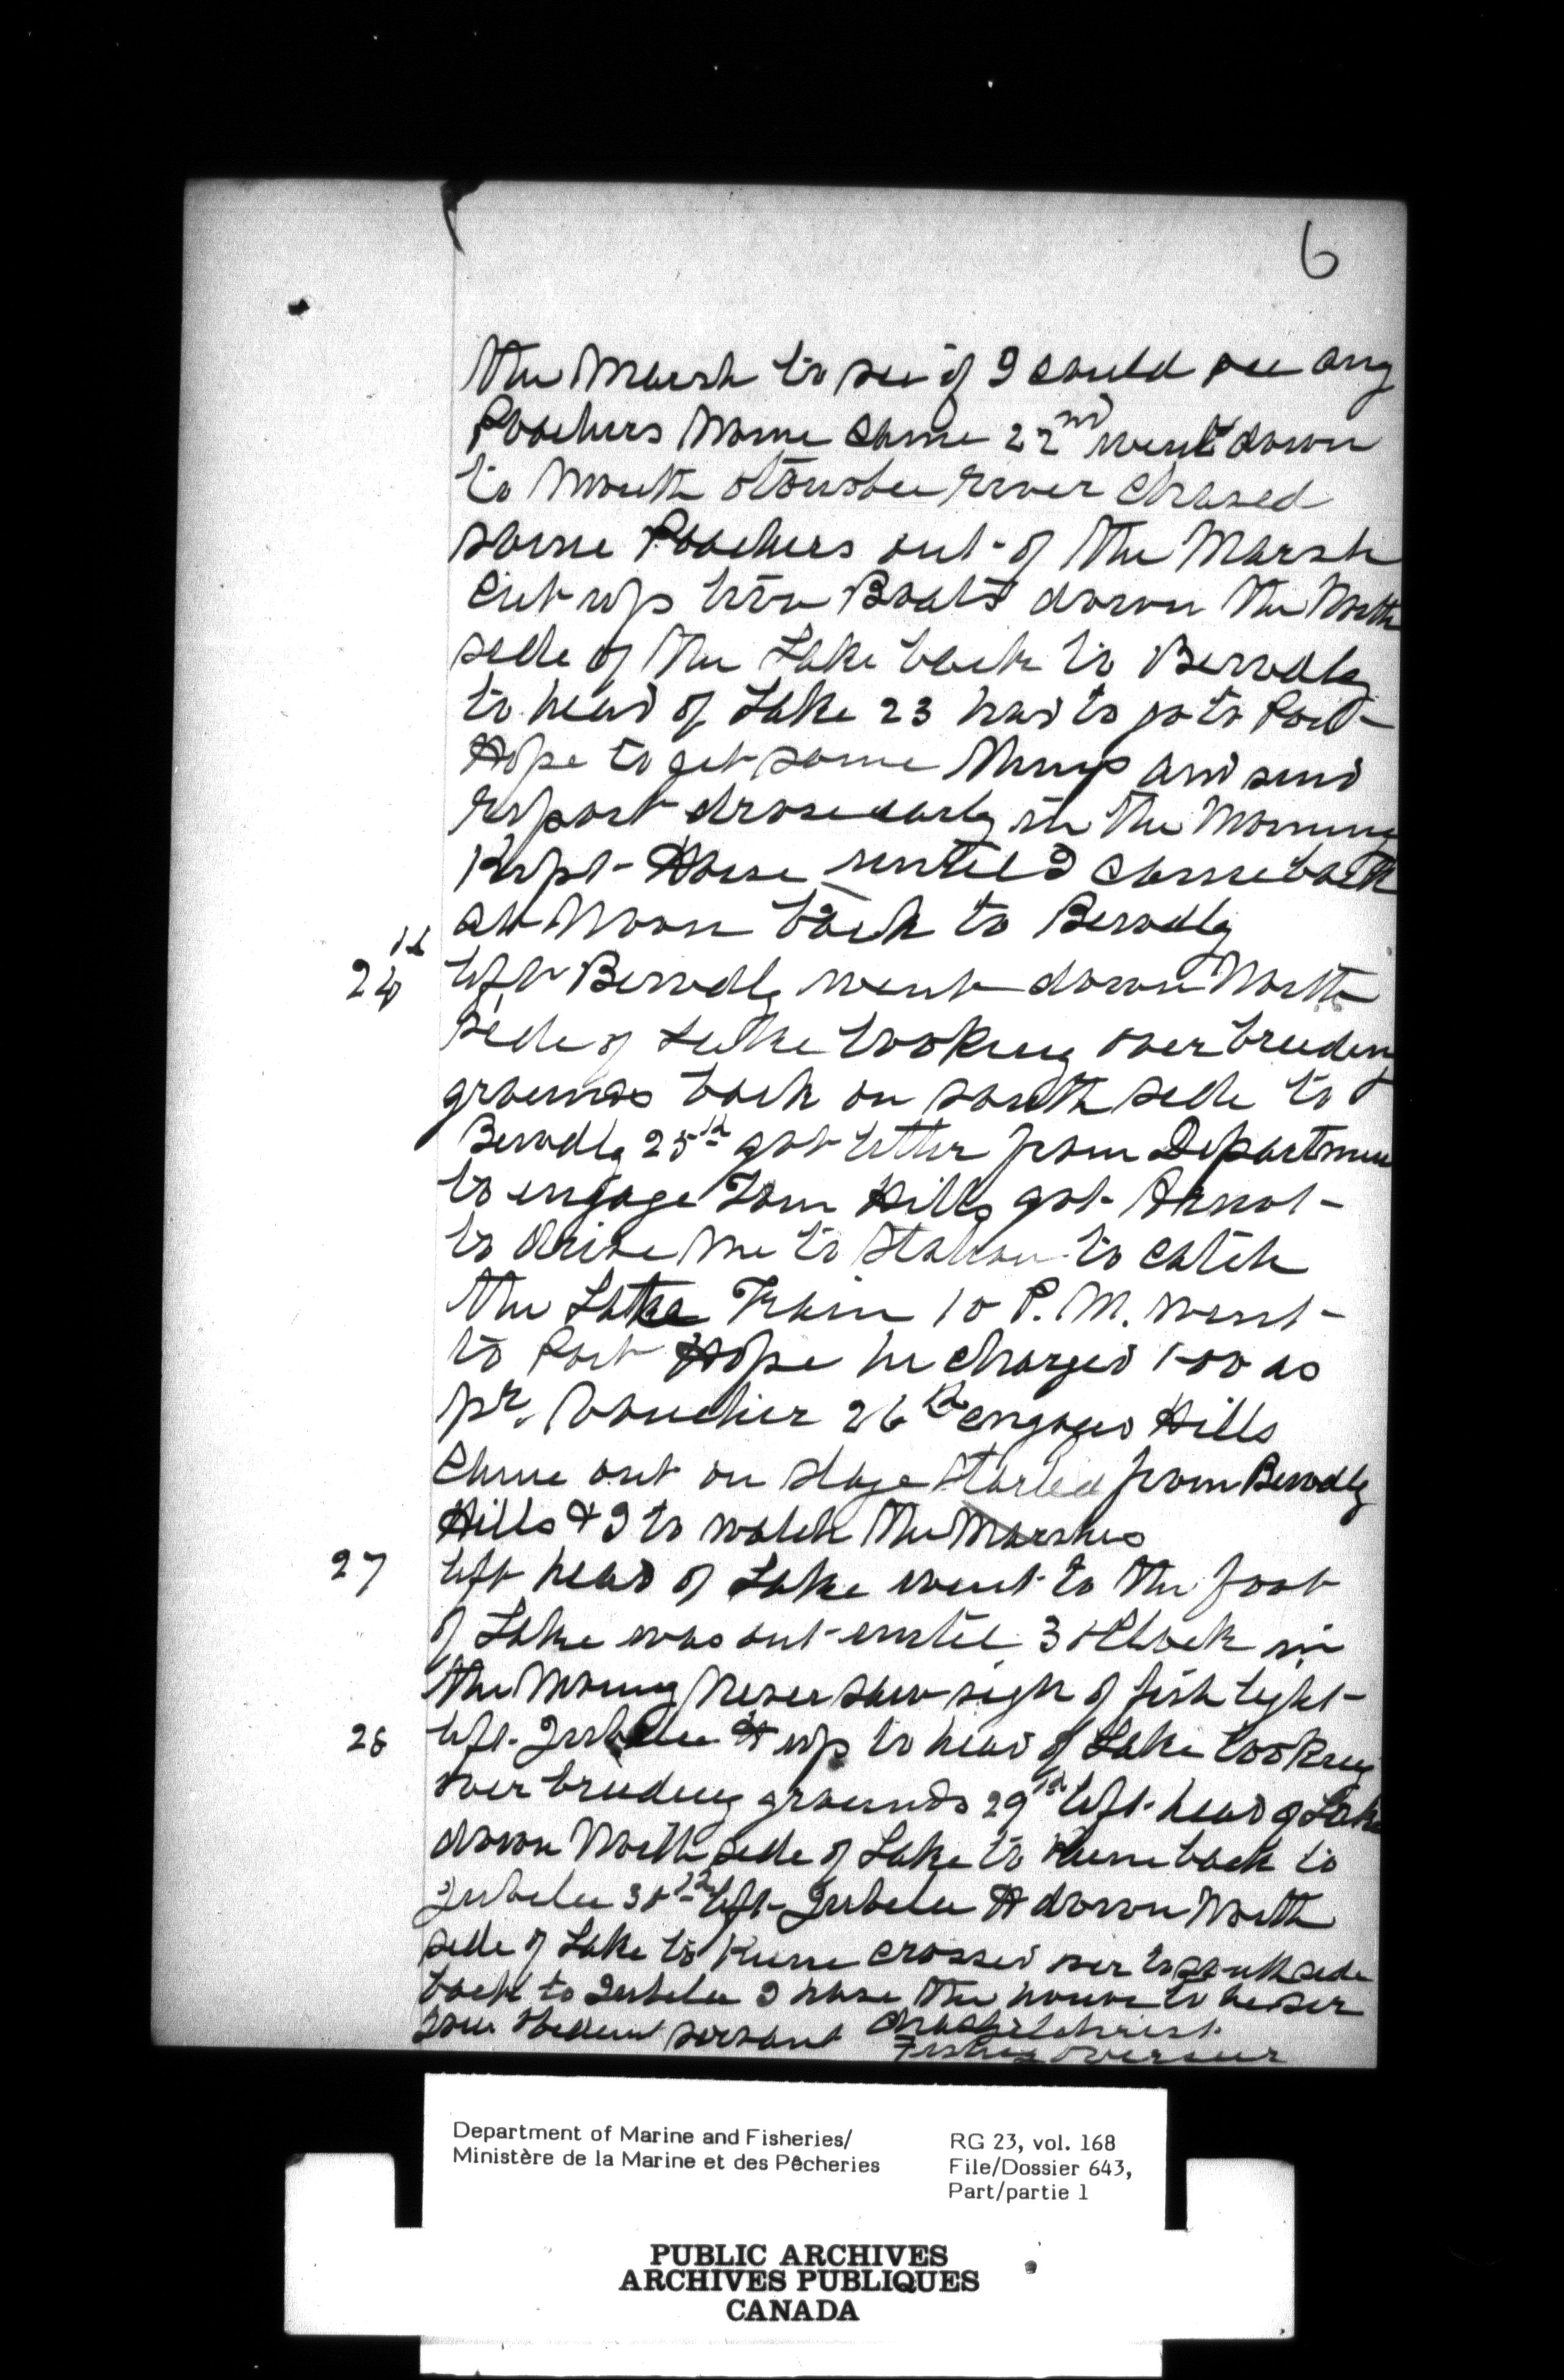 6
the Marsh to see if I could see any
Poachers None Came 22nd went down
to Mouth otonobee river Chased
some Poachers out of the Marsh
Cut up two Boats down the North
side of the Lake back to Bewdly
to head of Lake 23 had to go to Port
Hope to get some things and send
report drove early in the Morning
Kept Horse until I came back
at Noon back to Bewdly
24th left Bewdly went down North
side of Lake looking over breeding
grounds back on south side to
Bewdly 25th got letter from Departmen
to engage Tom Hills got Arnot
to drive me to Station to catch
the Late Train 10 P.M. went
to Port Hope he charged 1 00 as
pr. Voucher 26th engaged Hills
Came out on stage started from Bewdly
Hills & I to watch the Marshes
27 left head of Lake went to the foot
of Lake was out until 3 oClock in
the Morning Never saw sign of fish light
28 left Jubelee up to head of Lake looking
over breeding grounds 29th left head of Lake
down North side of Lake to back to
Jubelee 30th left Jubelee down North
side of Lake to crossed over to south side
back to Jubelee I have the honor to be sir
your obedient servant Chas Gilchrist
Fishery Overseer
Department of Marine and Fisheries/
Ministère de la Marine et des Pêcheries
RG 23, vol. 168
File/Dossier 643,
Part/partie 1
PUBLIC ARCHIVES
ARCHIVES PUBLIQUES
CANADA